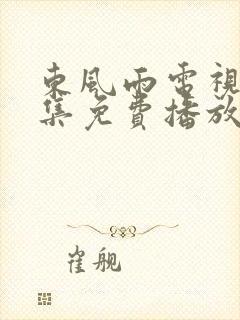 東風雨電視
集免費播放
崔舰